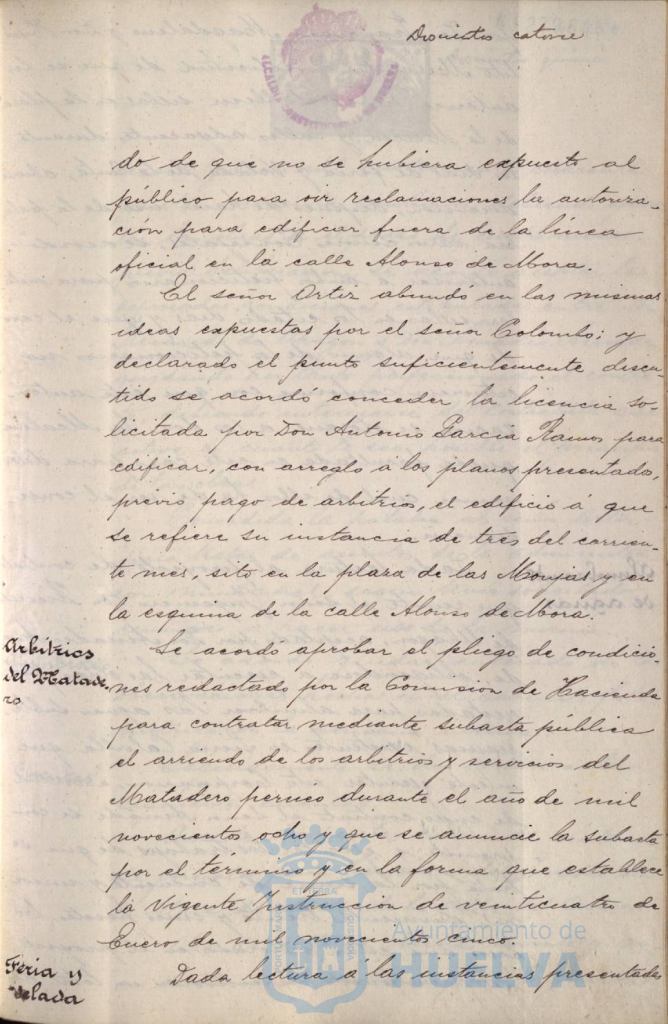 Doscientos catorce
do de que no se hubiera expuesto al
público para oir reclamaciones la autoriza-
ción para edificar fuera de la línea
oficial en la calle Alonso de Mora.
El señor Ortiz abundó en las mismas
ideas expuestas por el señor Colombo; y
declarado el punto suficientemente discu-
tido se acordó conceder la licencia so-
licitada por Don Antonio Garcia Ramos para
edificar, con arreglo á los planos presentado,
prévio pago de arbitrios, el edificio á que
se refiere su instancia de tres del corrien-
te mes, sito en la plaza de las Monjas y en
la esquina de la calle Alonso de Mora.
Arbitrios
del Matade-
ro
Se acordó aprobar el pliego de condicio-
nes redactado por la Comision de Hacienda
para contratar mediante subasta pública
el arriendo de los arbitrios y servicios del
Matadero pernico durante el año de mil
novecientos ocho y que se anuncie la subasta
por el término y en la forma que establece
la Vigente Instruccion de veinticuatro de
Enero de mil novecientos cinco.
Feria y
velada
Dada lectura á las instancias presentadas
Ayuntamiento de
HUELVA